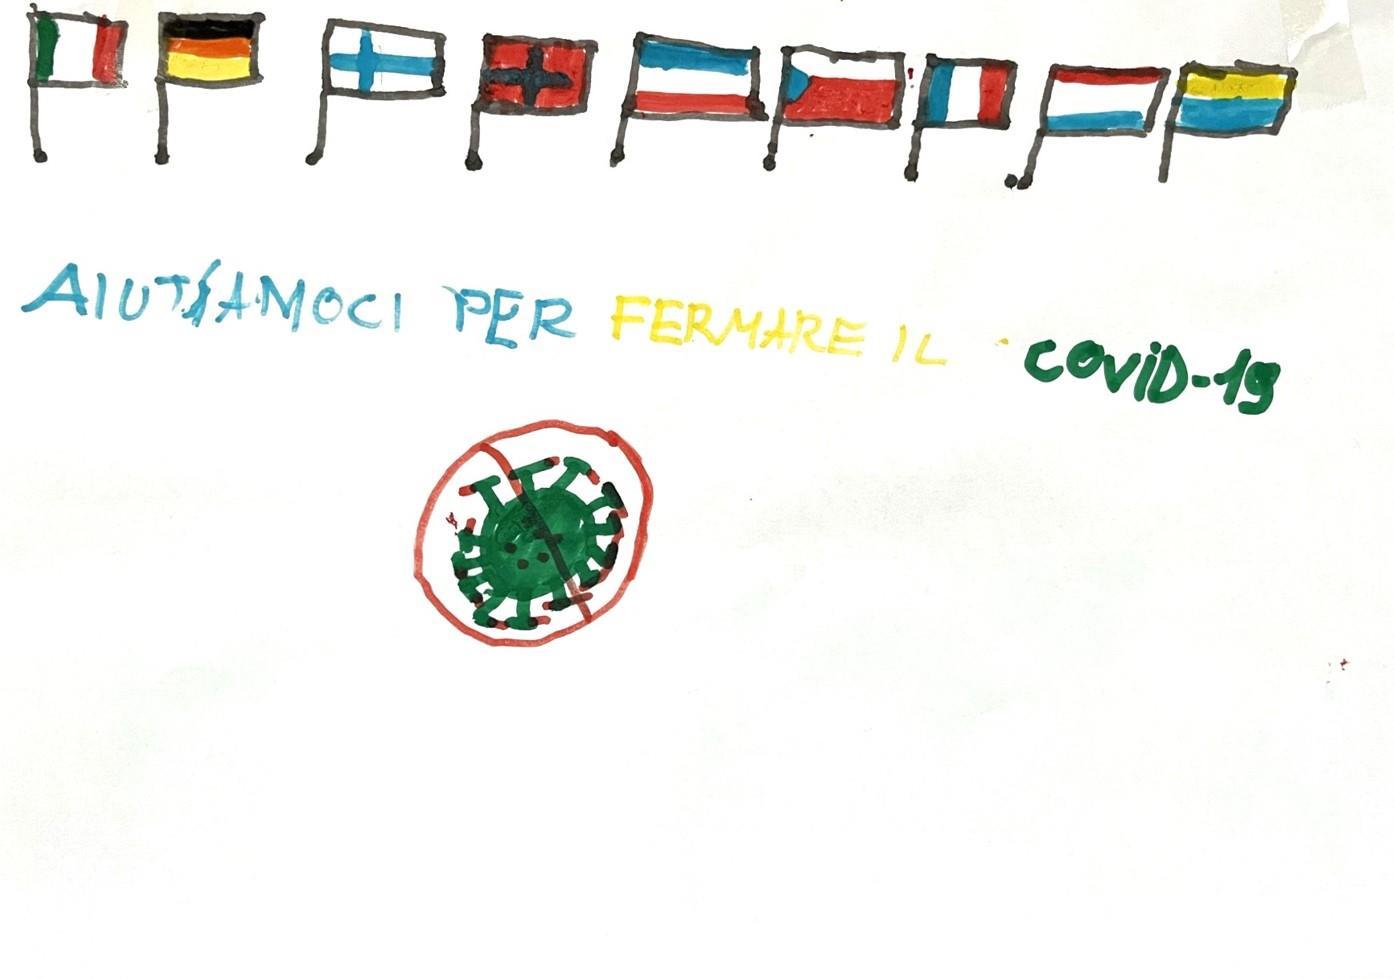 AIUTIAMOCI PER FERMARE IL COVID-19